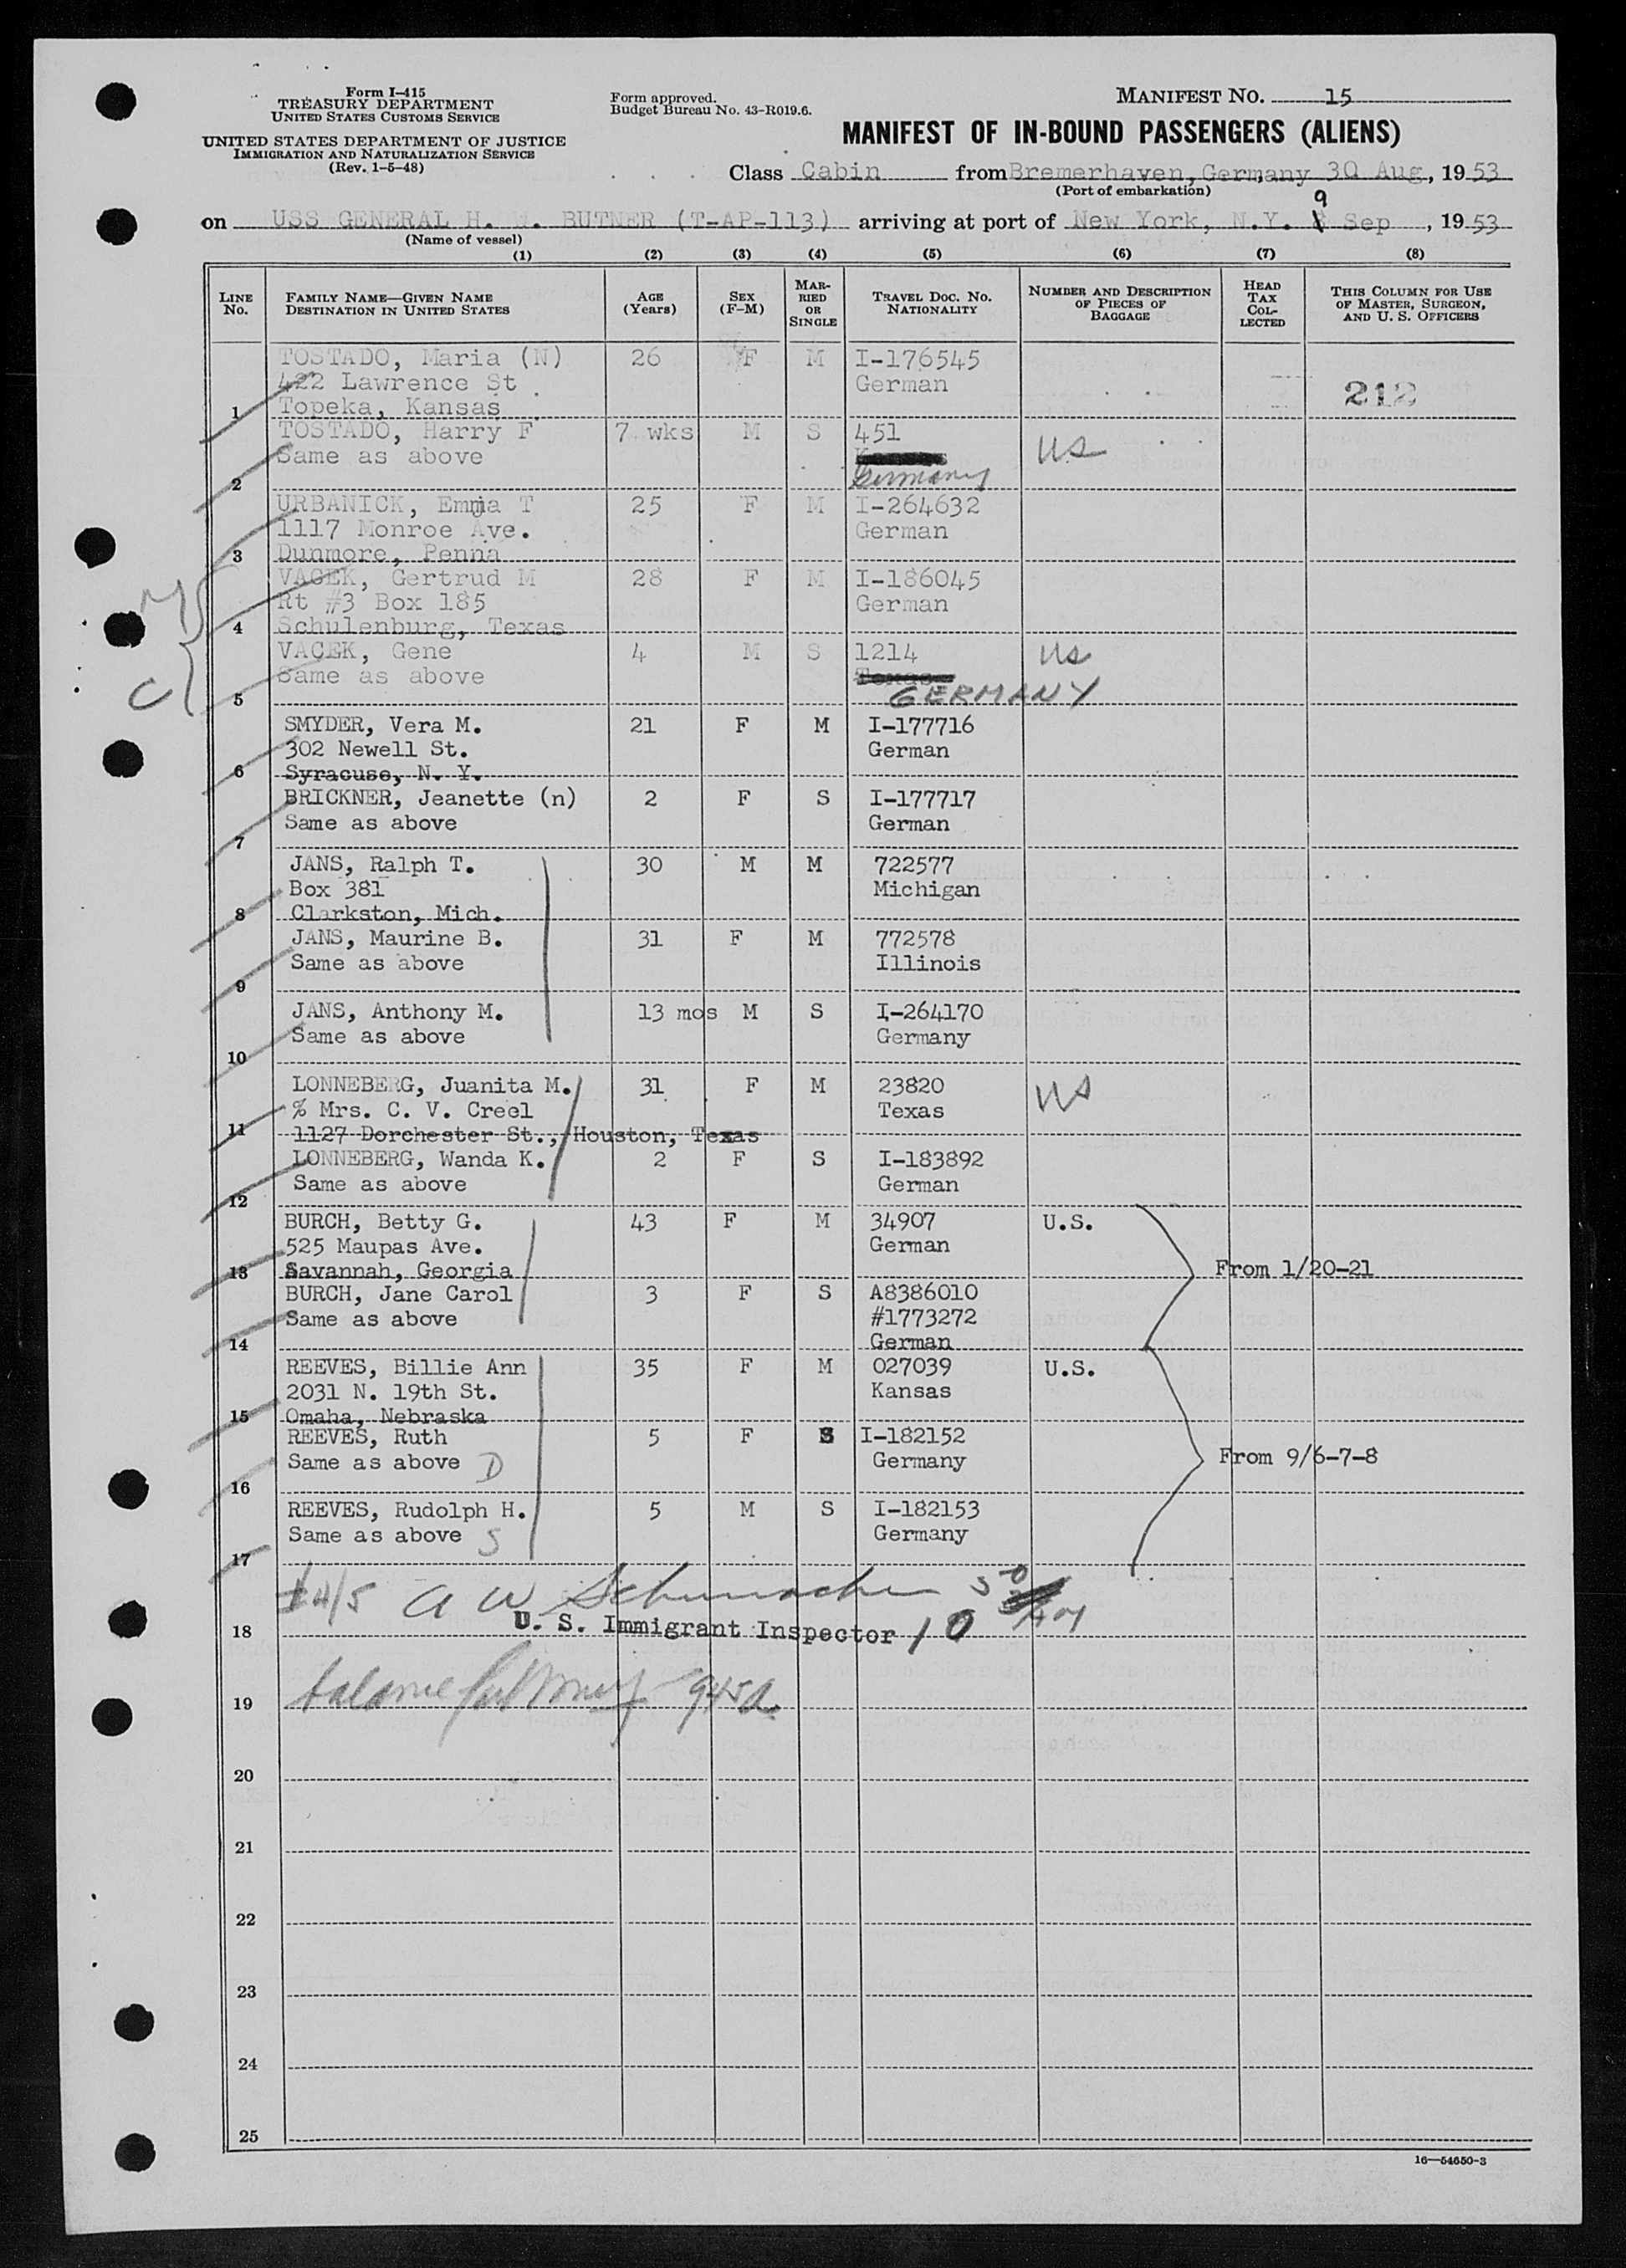 Form I-415
TREASURY DEPARTMENT
UNITED STATES CUSTOMS SERVICE
UNITED STATES DEPARTMENT OF JUSTICE
IMMIGRATION AND NATURALIZATION SERVICE
(Rev. 1-5-48)
Form approved.
Budget Bureau No. 43-R019.6.
MANIFEST NO. 15
MANIFEST OF IN-BOUND PASSENGERS (ALIENS)
Class Cabin from Bremerhaven, Germany 30 Aug, 1953
(Port of embarkation)
9
on USS GENERAL H. W. BUTNER (T-AP-113) arriving at port of New York, N.Y. 8 Sep, 1953
(Name of vessel)
(1) (2) (3) (4) (5) (6) (7) (8)
LINE No. FAMILY NAME—GIVEN NAME DESTINATION IN UNITED STATES AGE (Years) SEX (F-M) MARRIED OR SINGLE TRAVEL DOC. NO. NATIONALITY NUMBER AND DESCRIPTION OF PIECES OF BAGGAGE HEAD TAX COLLECTED THIS COLUMN FOR USE OF MASTER, SURGEON, AND U. S. OFFICERS
TOSTADO, Maria (N) 26 F M I-176545
422 Lawrence St German 212
1 Topeka, Kansas
TOSTADO, Harry F 7 wks M S 451 US
Same as above
2 Germany
URBANICK, Emma T 25 F M I-264632
1117 Monroe Ave. German
3 Dunmore, Penna
VACEK, Gertrud M 28 F M I-186045
Rt #3 Box 185 German
4 Schulenburg, Texas
VACEK, Gene 4 M S 1214 US
Same as above Texas
5 GERMANY
SMYDER, Vera M. 21 F M I-177716
302 Newell St. German
6 Syracuse, N. Y.
BRICKNER, Jeanette (n) 2 F S I-177717
Same as above German
7
JANS, Ralph T. 30 M M 722577
Box 381 Michigan
8 Clarkston, Mich.
JANS, Maurine B. 31 F M 772578
Same as above Illinois
9
JANS, Anthony M. 13 mos M S I-264170
Same as above Germany
10
LONNEBERG, Juanita M. 31 F M 23820 US
% Mrs. C. V. Creel Texas
11 1127 Dorchester St., Houston, Texas
LONNEBERG, Wanda K. 2 F S I-183892
Same as above German
12
BURCH, Betty G. 43 F M 34907 U.S.
525 Maupas Ave. German
13 Savannah, Georgia From 1/20-21
BURCH, Jane Carol 3 F S A8386010
Same as above #1773272
14 German
REEVES, Billie Ann 35 F M 027039 U.S.
2031 N. 19th St. Kansas
15 Omaha, Nebraska
REEVES, Ruth 5 F S I-182152
Same as above D Germany From 9/6-7-8
16
REEVES, Rudolph H. 5 M S I-182153
Same as above S Germany
17
A W Schumacher
18 U. S. Immigrant Inspector 10
19
20
21
22
23
24
25
16—54650-3